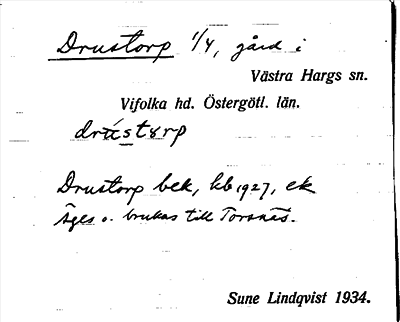 Drustorp 1/4, gård i
Västra Hargs sn.
Vifolka hd. Östergötl. län.
Drustorp bek, hb 1927, ek
äges o. brukas till Torsnäs.
Sune Lindqvist 1934.